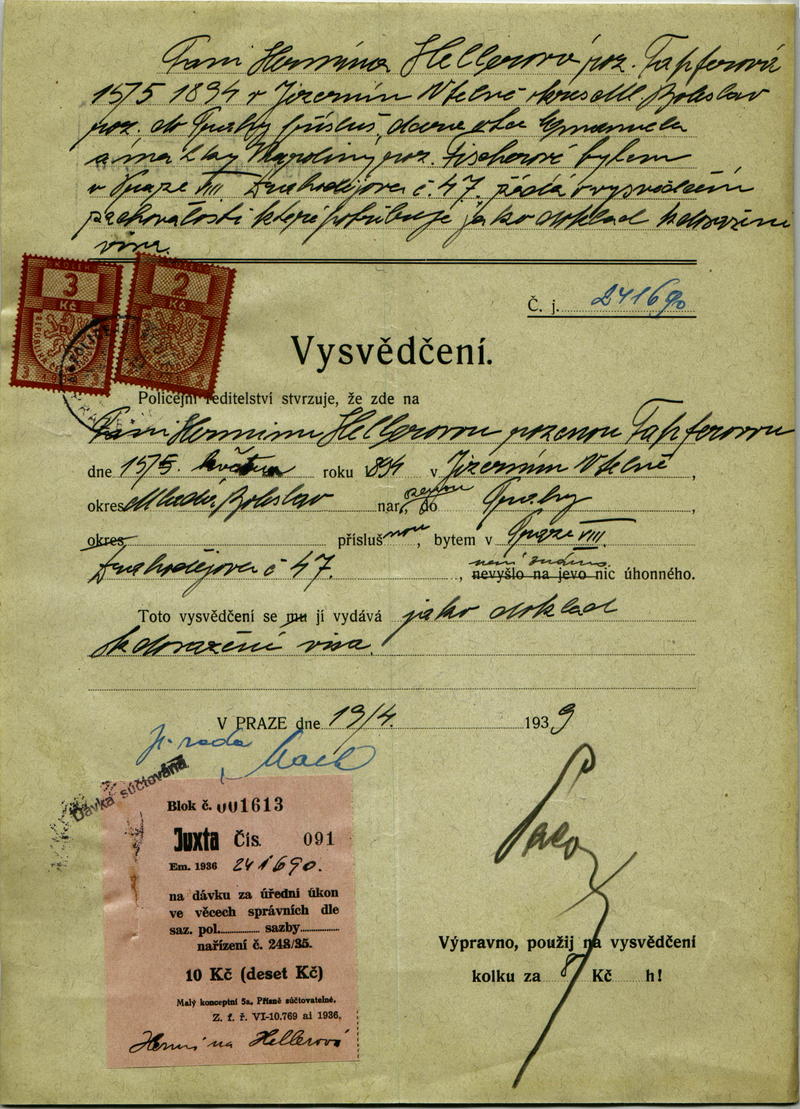 Paní Hermina Hellerová roz. Tapferová
15/5 1894 v Jizerním Vtelně okres Ml. Boleslav
roz. do Prahy přísluš, dcera otce Emanuela
a matky Karoliny roz. Fischerové bytem
v Praze VII. Dražod č. 47. žádá o vysvědčení
zachovalosti které potřebuje jako doklad k dosažení
visa.
3
Kč
2
Kč
Č. j. 241690
Vysvědčení.
Policejní ředitelství stvrzuje, že zde na
Paní Herminu Hellerovou rozenou Tapferovou
dne 15/5. května roku 894 v Jizerním Vtelně,
okres Mladá Boleslav nar., do Prahy,
okres příslušnou, bytem v Praze VIII.
č 47. není známo
, nevyšlo na jevo nic úhonného.
Toto vysvědčení se mu jí vydává jako doklad
k dosažení visa.
V PRAZE dne 19/4. 1939
rada
Dávka súčtována
Blok č. 001613
Juxta Čís. 091
Em. 1936 241690.
na dávku za úřední úkon
ve věcech správních dle
saz. pol. sazby
nařízení č. 248/35.
10 Kč (deset Kč)
Malý konceptní 5a. Přísně súčtovatelné.
Z. f. ř. VI-10.769 ai 1936.
Hermina Hellerová
Výpravno, použij na vysvědčení
kolku za 8 Kč h!